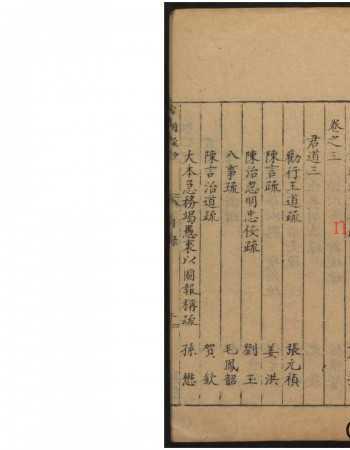 卷之三
君道三
勸行王道疏 張元禎
陳言疏 姜洪
陳治忽明忠佞疏 劉玉
八事疏 毛鳳韶
陳言治道疏 賀欽
大本急務竭愚衷以圖報稱疏 孫懋
目錄